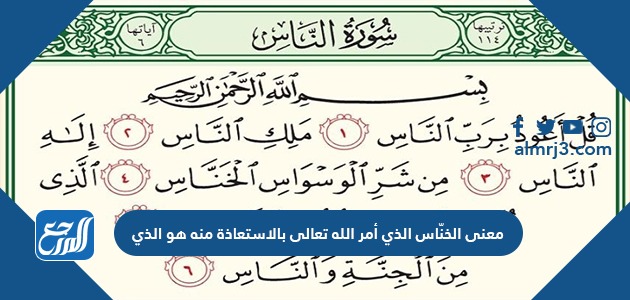 ترتيبها
١١٤
سُورَةُ النَّاسِ
آياتها
٦
بِسْمِ اللَّهِ الرَّحْمَٰنِ الرَّحِيمِ
قُلْ أَعُوذُ بِرَبِّ النَّاسِ ١ مَلِكِ النَّاسِ ٢ إِلَٰهِ
النَّاسِ ٣ مِن شَرِّ الْوَسْوَاسِ الْخَنَّاسِ ٤ الَّذِى
معنى الخنّاس الذي أمر الله تعالى بالاستعاذة منه هو الذي
مِنَ الْجِنَّةِ وَالنَّاسِ ٦
almrj3.com
المرجع